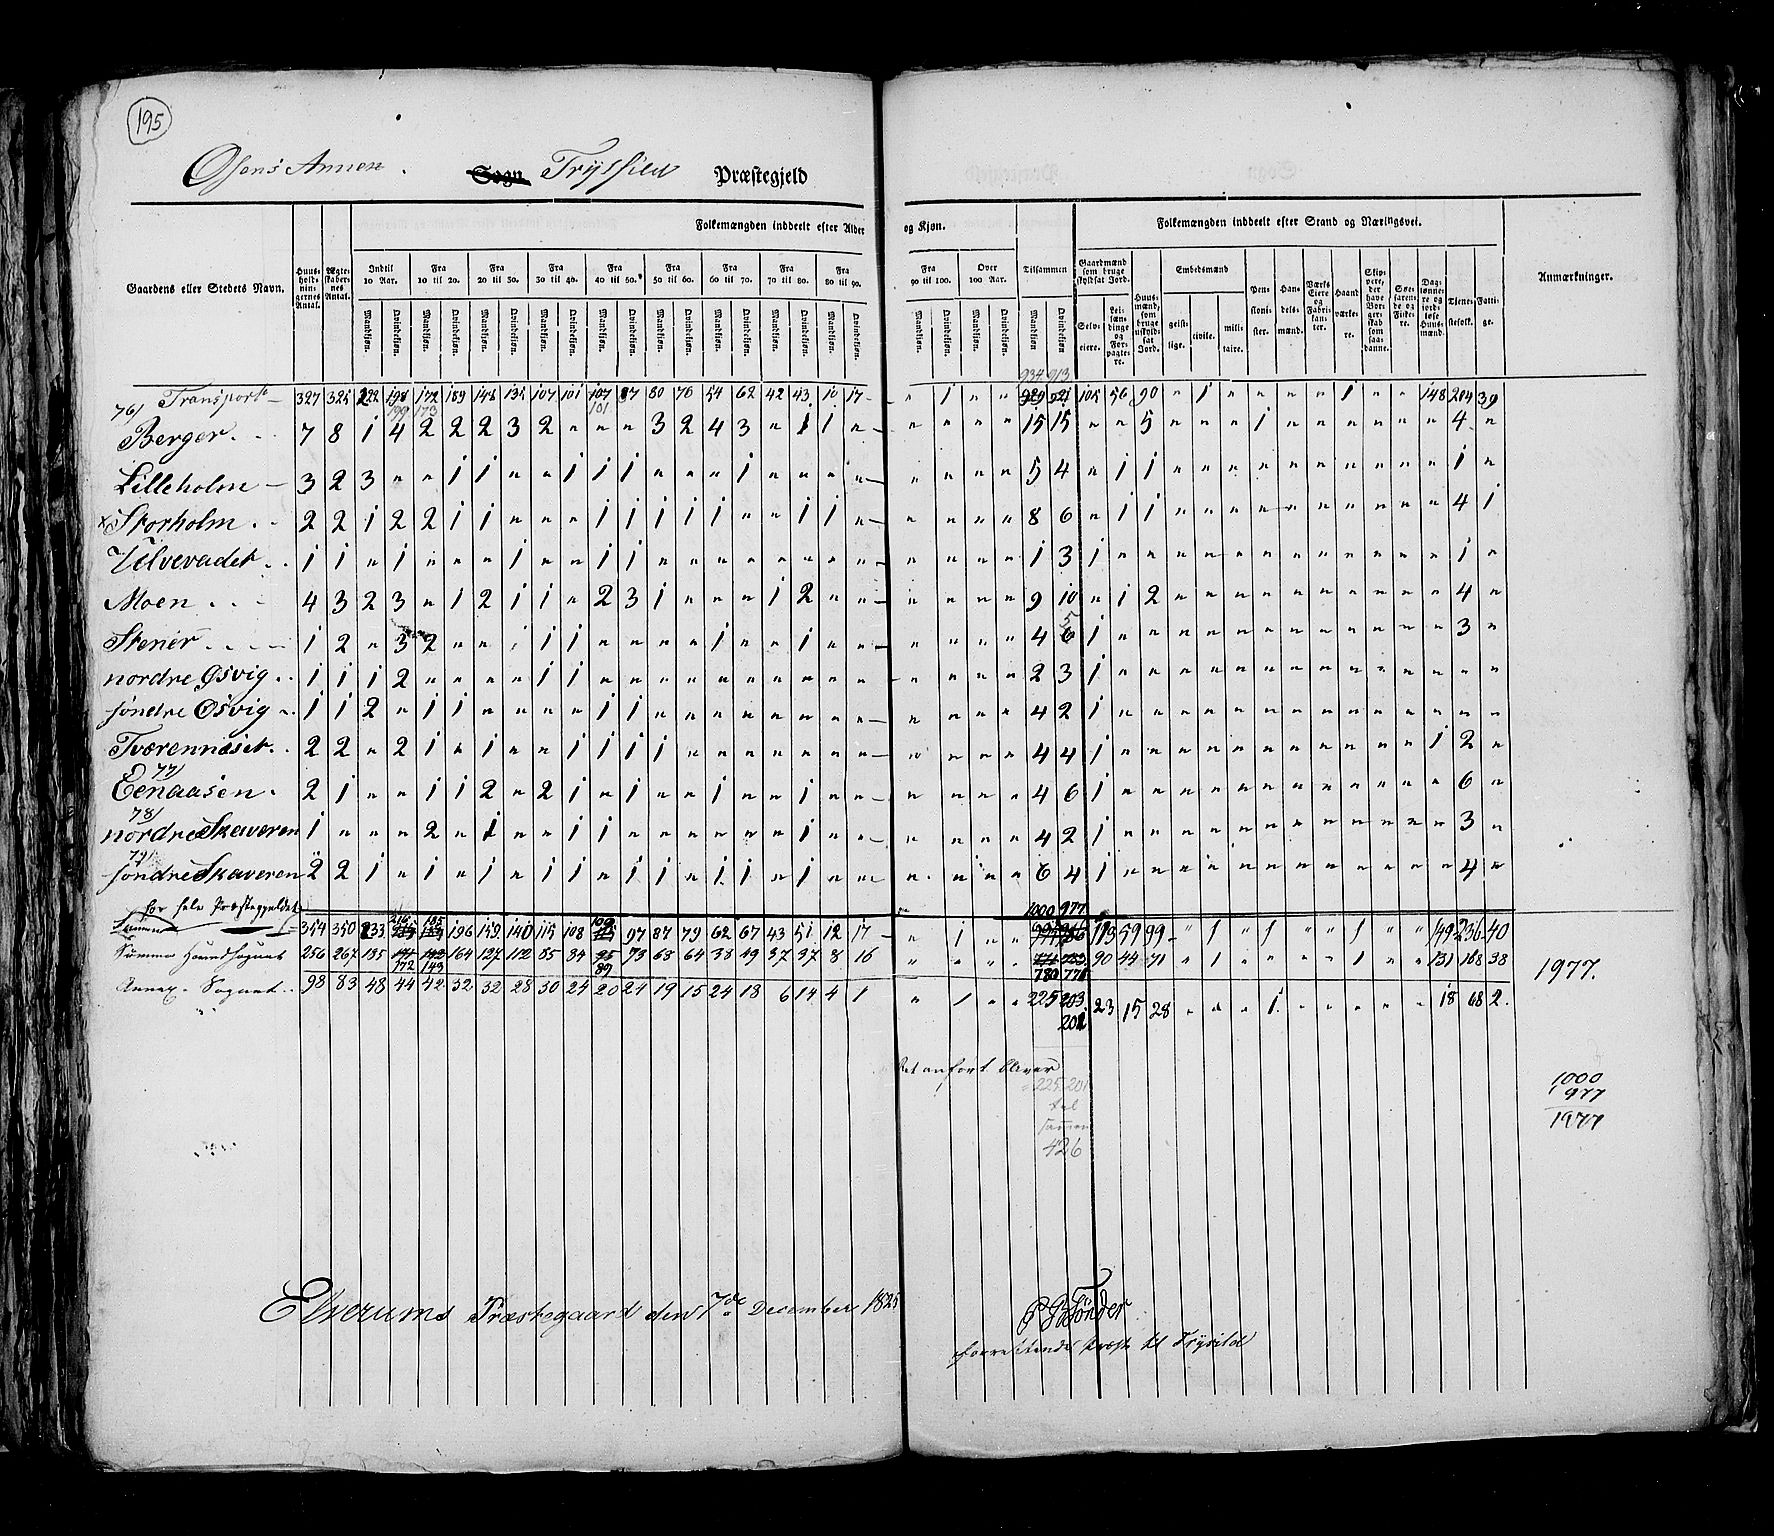 195
Osens Annex. Sogn Trysild Præstegjeld
Folkemængden inddeelt efter Alder og Kjøn.
Folkemængden inddeelt efter Stand og Næringsvei.
Gaardens eller Stedets Navn.
Huusholdningernes Antal.
Ægteskabernes Antal.
Indtil 10 Aar.
Fra 10 til 20.
Fra 20 til 30.
Fra 30 til 40.
Fra 40 til 50.
Fra 50 til 60.
Fra 60 til 70.
Fra 70 til 80.
Fra 80 til 90.
Fra 90 til 100.
Over 100 Aar.
Tilsammen
Mandkjøn. Qvindekjøn.
Gaardmænd som bruge skyldsat Jord.
Selveiere.
Leilændinge og Forpagtere.
Huusmænd, som bruge uskyldsat Jord.
Embedsmænd
geistlige.
civile.
militaire.
Pensionister.
Handelsmænd.
Værkseiere og Fabrikanter.
Haandværkere.
Skippere, der have Borgerskab som saadanne.
Søefarende og Fiskere.
Daglønnere og jordløse Huusmænd.
Tjenestefolk.
Fattige.
Anmærkninger.
934 913
Transport 327 325 222 198 172 189 148 135 107 101 107 87 80 76 54 62 42 43 10 17 " 1 " " 929 921 105 56 90 " 1 " " " " 1 " " 148 204 39
199 173 101
76) Berger 7 8 1 4 2 2 2 3 2 " " " 3 2 4 3 " 1 1 " " " " " 15 15 " " 5 " " " 1 " " " " " " 4 "
Lilleholm 3 2 3 " " 1 1 " " 1 1 1 " " " 1 " " " " " " " " 5 4 " 1 1 " " " " " " " " " " 1 "
x Storholm 2 2 1 2 2 1 1 " " " 1 1 1 1 1 " " 1 1 " " " " " 8 6 " 1 1 " " " " " " " " " " 4 1
Ulvevadet 1 1 " 1 " " " 1 " " 1 1 " " " " " " " " " " " " 1 3 1 " " " " " " " " " " " " 1 "
Moen 4 3 2 3 " 1 2 1 1 " 2 3 1 " " " 1 2 " " " " " " 9 10 " 1 2 " " " " " " " " " " 4 "
5
Stener 1 2 " 3 2 " " 1 1 1 " " " " 1 " " 1 " " " " " " 4 6 1 " " " " " " " " " " " " 3 "
nordre Øsvig 1 1 1 2 " " " " 1 1 " " " " " " " " " " " " " " 2 3 1 " " " " " " " " " " " " " "
søndre Øsvig 1 1 2 " 1 1 " " " " 1 1 " " " " " " " " " " " " 4 2 1 " " " " " " " " " " " " " "
Tværennæset 2 2 " 2 1 " 1 " " 1 1 1 1 " " " " " " " " " " " 4 4 1 " " " " " " " " " " " 1 2 "
77) Eenaasen 2 1 " " 1 1 2 " 2 1 " 1 " " 1 " " 1 " " " " " " 4 6 1 " " " " " " " " " " " " 6 "
78) nordre Skaveren 1 " " " 2 " 1 " " 1 1 " " " " " " 1 " " " " " " 4 2 1 " " " " " " " " " " " " 3 "
79) søndre Skaveren 2 2 1 " 1 " 1 " 1 1 " 1 1 " 1 1 " 1 " " " " " " 6 4 1 " " " " " " " " " " " " 4 "
for hele Præstegjeldet
1000 977
216 185 109
Summa 354 350 233 196 152 140 115 108 97 87 79 62 67 43 51 12 17 " 1 " " 113 59 99 " 1 " 1 " " 1 " " 149 236 40
Summa Hovedsognet 256 267 185 164 127 112 85 84 73 68 64 38 49 37 37 8 16 " " " " 90 44 71 " 1 " " " " 1 " " 131 168 38
172 143 89 780 776
Annex-Sognet 98 83 48 44 42 32 32 28 30 24 20 24 19 15 24 18 6 14 4 1 " 1 " " 225 203 23 15 28 " " " 1 " " " " " 18 68 2
201
1977.
225 201
til
sammen
426
1000
977
1977
Elverums Præstegaard den 7de December 1825
P P Tønder
forrettende Præst til Trysild